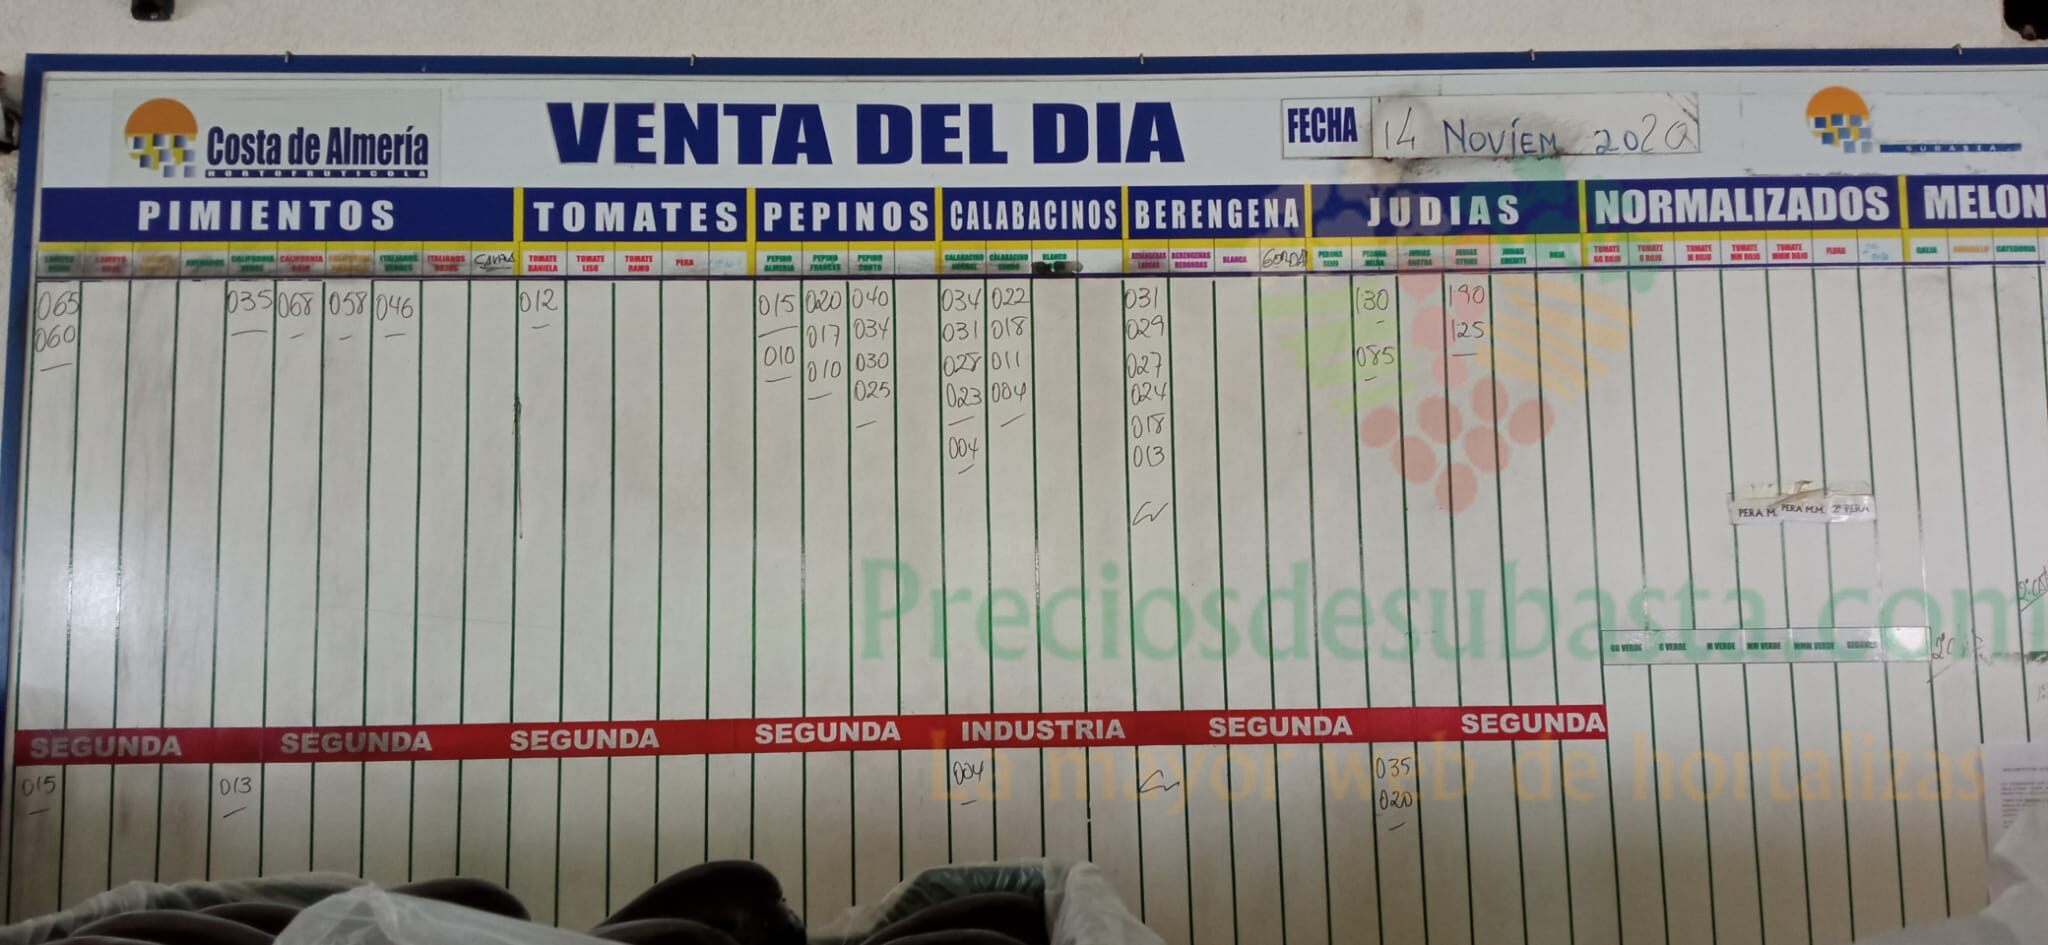 Costa de Almería
HORTOFRUTICOLA
VENTA DEL DIA
FECHA 14 NOVIEM 2020
SUBASTA
PIMIENTOS TOMATES PEPINOS CALABACINOS BERENGENA JUDIAS NORMALIZADOS MELON
CALIFORNIA VERDE CALIFORNIA ROJO ITALIANOS VERDES ITALIANOS ROJOS TOMATE DANIELA TOMATE LISO TOMATE RAMO PERA PEPINO ALMERIA PEPINO FRANCES PEPINO CORTO CALABACINO GORDO BLANCO BERENGENAS LARGAS BERENGENAS REDONDAS BLANCA GORDA ROJA TOMATE GG ROJO TOMATE G ROJO TOMATE M ROJO TOMATE MM ROJO TOMATE MMM ROJO GALIA AMARILLO CATEGORIA
065 035 068 058 046 012 015 020 040 034 022 031 130 190
060 017 034 031 018 029 125
010 010 030 028 011 027 085
025 023 004 024
018
004 013
PERA M. PERA M.M. 2ª PERA
Preciosdesubasta.com
GG VERDE G VERDE M VERDE MM VERDE MMM VERDE SEGUNDA
SEGUNDA SEGUNDA SEGUNDA SEGUNDA INDUSTRIA SEGUNDA SEGUNDA
La mayor web de hortalizas
015 013 004 035
020